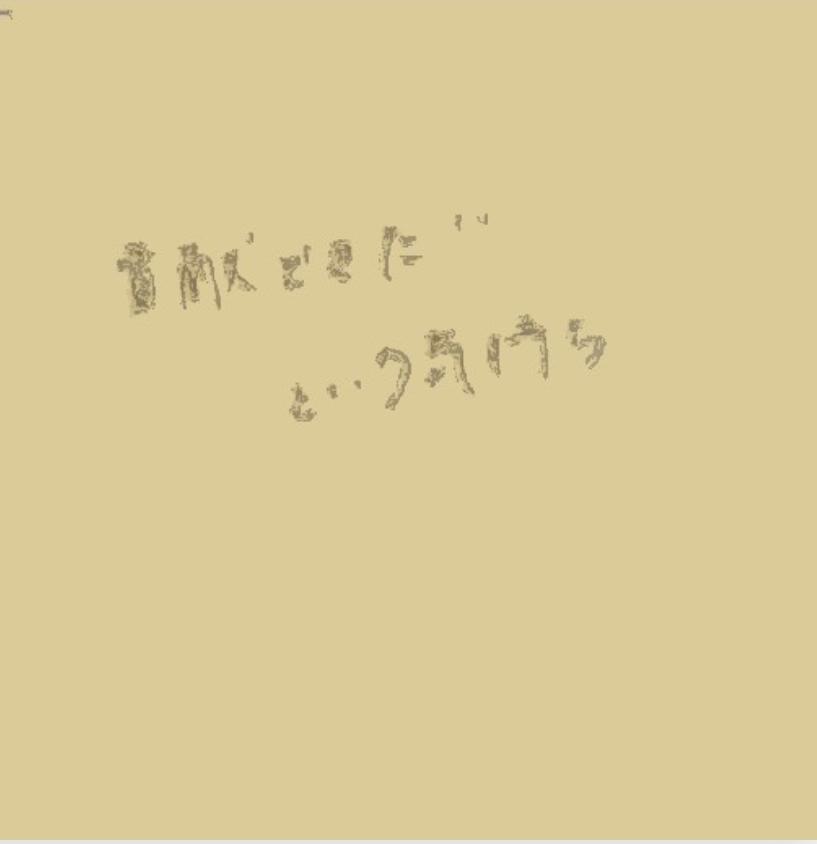 貢献できた"
という気持ち